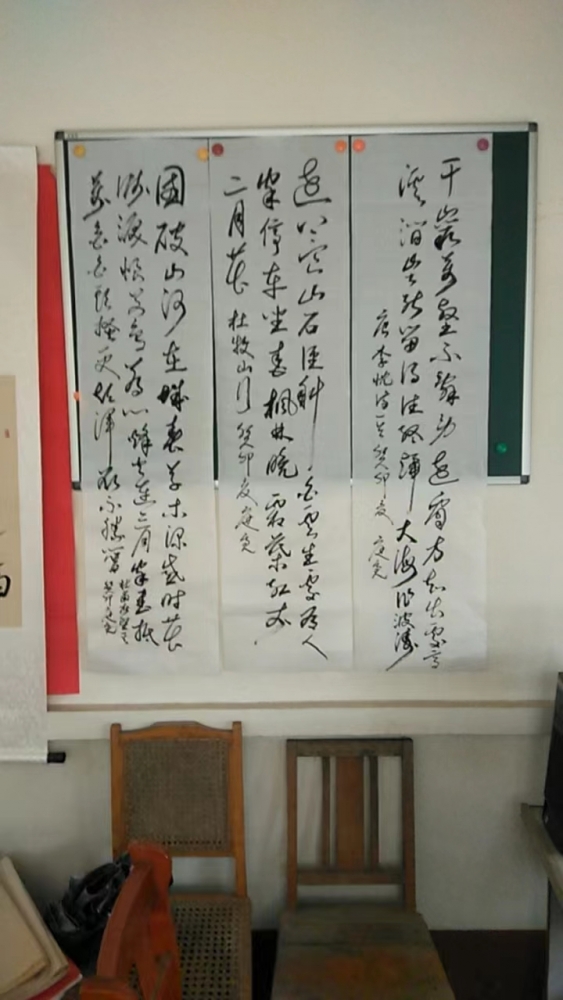 千岩万壑不辞劳远看方知出处高
溪涧岂能留得住终归大海作波涛
唐李忱诗一首癸卯夏庭光
远上寒山石径斜白云生处有人
家停车坐爱枫林晚霜叶红于
二月花杜牧山行癸卯夏庭光
國破山河在城春草木深感时花
溅泪恨别鸟惊心烽火连三月家书抵
万金白头搔更短浑欲不胜簪
杜甫春望
癸卯庭光